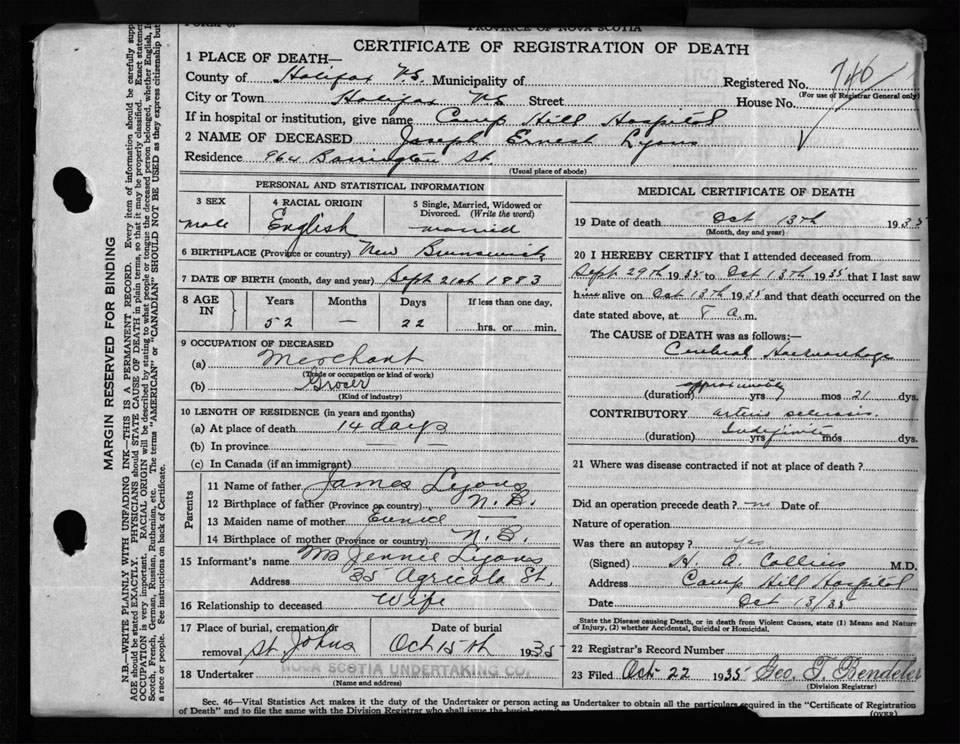 PROVINCE OF NOVA SCOTIA
CERTIFICATE OF REGISTRATION OF DEATH
1 PLACE OF DEATH—
County of Halifax N.S. Municipality of Registered No. 740
(For use of Registrar General only)
City or Town Halifax N.S Street House No.
If in hospital or institution, give name Camp Hill Hospital
2 NAME OF DECEASED Joseph Ernest Lyons
Residence 964 Barrington St.
(Usual place of abode)
MARGIN RESERVED FOR BINDING
N.B.—WRITE PLAINLY WITH UNFADING INK—THIS IS A PERMANENT RECORD. Every item of information should be carefully supp
AGE should be stated EXACTLY. PHYSICIANS should STATE CAUSE OF DEATH in plain terms, so that it may be properly classified. Exact statement
OCCUPATION is very important. RACIAL ORIGIN will be described by stating to what people or tongue the deceased person belonged, whether English, I
Scotch, French, German, Russian, Ruthenian, etc. The terms "AMERICAN" or "CANADIAN" SHOULD NOT BE USED as they express citizenship but
a race or people. See instructions on back of Certificate.
PERSONAL AND STATISTICAL INFORMATION
3 SEX 4 RACIAL ORIGIN 5 Single, Married, Widowed or
Divorced. (Write the word)
male English married
6 BIRTHPLACE (Province or country) New Brunswick
7 DATE OF BIRTH (month, day and year) Sept 21st 1883
8 AGE IN Years Months Days If less than one day,
52 — 22 hrs. or min.
9 OCCUPATION OF DECEASED
(a) Merchant
(Trade or occupation or kind of work)
(b) Grocer
(Kind of industry)
10 LENGTH OF RESIDENCE (in years and months)
(a) At place of death 14 days
(b) In province
(c) In Canada (if an immigrant)
Parents
11 Name of father James Lyons
12 Birthplace of father (Province or country) N.B.
13 Maiden name of mother Eunice
14 Birthplace of mother (Province or country) N.B.
15 Informant's name Mrs Jennie Lyons
Address 35 Agricola St.
16 Relationship to deceased Wife
17 Place of burial, cremation or Date of burial
removal St Johns Oct 15th 1935
18 Undertaker NOVA SCOTIA UNDERTAKING CO.
(Name and address)
MEDICAL CERTIFICATE OF DEATH
19 Date of death Oct 13th 1935
(Month, day and year)
20 I HEREBY CERTIFY that I attended deceased from
Sept 29th 1935 to Oct 13th 1935 that I last saw
him alive on Oct 13th 1935 and that death occurred on the
date stated above, at 8 a.m.
The CAUSE of DEATH was as follows:—
Cerebral Haemorrhage
approximately
(duration) yrs mos 21 dys.
CONTRIBUTORY arterio sclerosis.
(duration) Indefinite yrs mos dys.
21 Where was disease contracted if not at place of death?
Did an operation precede death? no Date of
Nature of operation
Was there an autopsy? yes
(Signed) H. A. Collins M.D.
Address Camp Hill Hospital
Date Oct 13/35
State the Disease causing Death, or in death from Violent Causes, state (1) Means and Nature
of Injury, (2) whether Accidental, Suicidal or Homicidal.
22 Registrar's Record Number
23 Filed Oct 22 1935 Geo. T. Bendeler
(Division Registrar)
Sec. 46—Vital Statistics Act makes it the duty of the Undertaker or person acting as Undertaker to obtain all the particulars required in the "Certificate of Registration
of Death" and to file the same with the Division Registrar who shall issue the burial permit
(OVER)